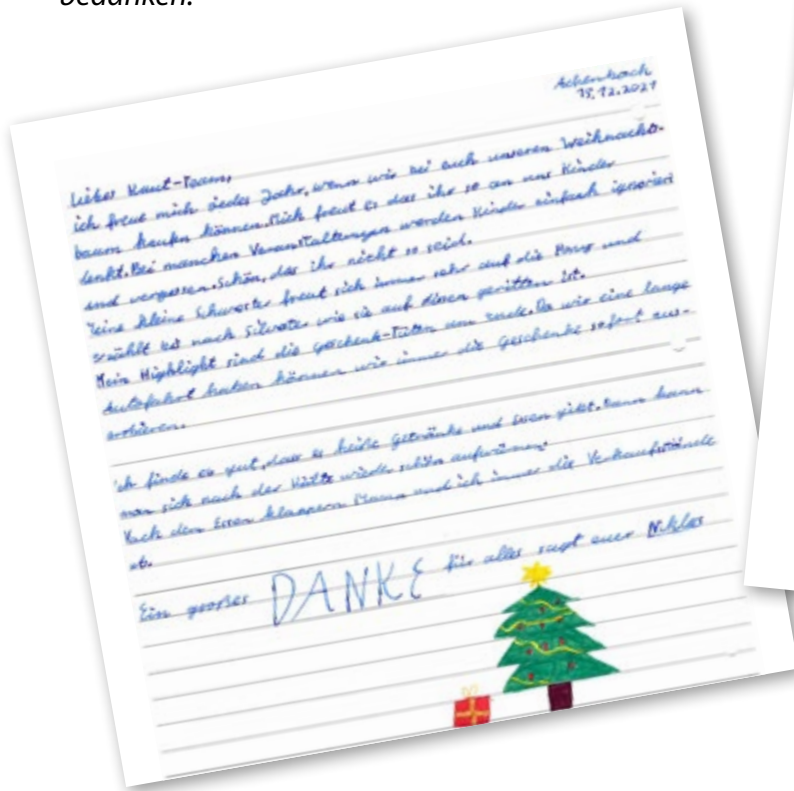 bedanken.
Achenbach
15.12.2021
Liebes Kaut-Team,
ich freue mich jedes Jahr, wenn wir bei euch unseren Weihnachts-
baum kaufen können. Mich freut es das ihr so an uns Kinder
denkt. Bei manchen Veranstaltungen werden Kinder einfach ignoriert
und vergessen. Schön, das ihr nicht so seid.
kleine Schwester freut sich immer sehr auf die Ponys und
erzählt bis nach Silvester wie sie auf diesen geritten ist.
Mein Highlight sind die Geschenk-Tüten am Ende. Da wir eine lange
Autofahrt haben können wir immer die Geschenke sofort aus-
probieren.
Ich finde es gut, dass es heiße Getränke und Essen gibt. Dann kann
man sich nach der Kälte wieder schön aufwärmen.
Nach dem Essen klappern Mama und ich immer die Verkaufsstände
ab.
Ein großes DANKE für alles sagt euer Niklas